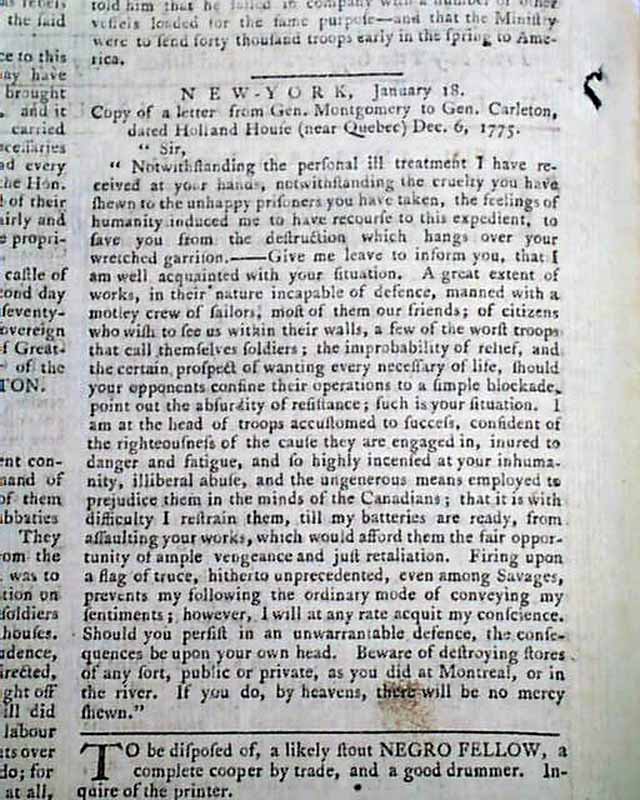 the ſaid
ce to this
may have
brought
, and it
carried
ceſſaries
ad every
the Hon.
of their
airly and
e propri-
caſtle of
cond day
ſeventy-
overeign
f Great-
of the
TON.
ent con-
mand of
of them
abbaties
They
om the
was to
tion on
ſoldiers
houſes.
udence,
irected,
ght off
ill did
labour
ats over
do; for
at all,
told him that he ſailed in company with a number of other
veſſels loaded for the ſame purpoſe—and that the Miniſtry
were to ſend forty thouſand troops early in the ſpring to Ame-
rica.
NEW-YORK, January 18.
Copy of a letter from Gen. Montgomery to Gen. Carleton,
dated Holland Houſe (near Quebec) Dec. 6, 1775.
" Sir,
" Notwithſtanding the perſonal ill treatment I have re-
ceived at your hands, notwithſtanding the cruelty you have
ſhewn to the unhappy priſoners you have taken, the feelings of
humanity induced me to have recourſe to this expedient, to
ſave you from the deſtruction which hangs over your
wretched garriſon.——Give me leave to inform you, that I
am well acquainted with your ſituation. A great extent of
works, in their nature incapable of defence, manned with a
motley crew of ſailors, moſt of them our friends; of citizens
who wiſh to ſee us within their walls, a few of the worſt troops
that call themſelves ſoldiers; the improbability of relief, and
the certain proſpect of wanting every neceſſary of life, ſhould
your opponents confine their operations to a ſimple blockade,
point out the abſurdity of reſiſtance; ſuch is your ſituation. I
am at the head of troops accuſtomed to ſucceſs, confident of
the righteouſneſs of the cauſe they are engaged in, inured to
danger and fatigue, and ſo highly incenſed at your inhuma-
nity, illiberal abuſe, and the ungenerous means employed to
prejudice them in the minds of the Canadians; that it is with
difficulty I reſtrain them, till my batteries are ready, from
aſſaulting your works, which would afford them the fair oppor-
tunity of ample vengeance and juſt retaliation. Firing upon
a flag of truce, hitherto unprecedented, even among Savages,
prevents my following the ordinary mode of conveying my
ſentiments; however, I will at any rate acquit my conſcience.
Should you perſiſt in an unwarrantable defence, the conſe-
quences be upon your own head. Beware of deſtroying ſtores
of any ſort, public or private, as you did at Montreal, or in
the river. If you do, by heavens, there will be no mercy
ſhewn."
TO be diſpoſed of, a likely ſtout NEGRO FELLOW, a
complete cooper by trade, and a good drummer. In-
quire of the printer.